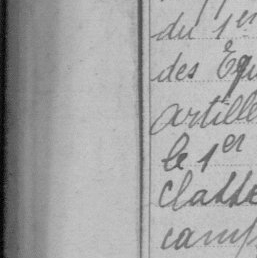 du 1er
des Équ
artille
le 1er
classe
camp